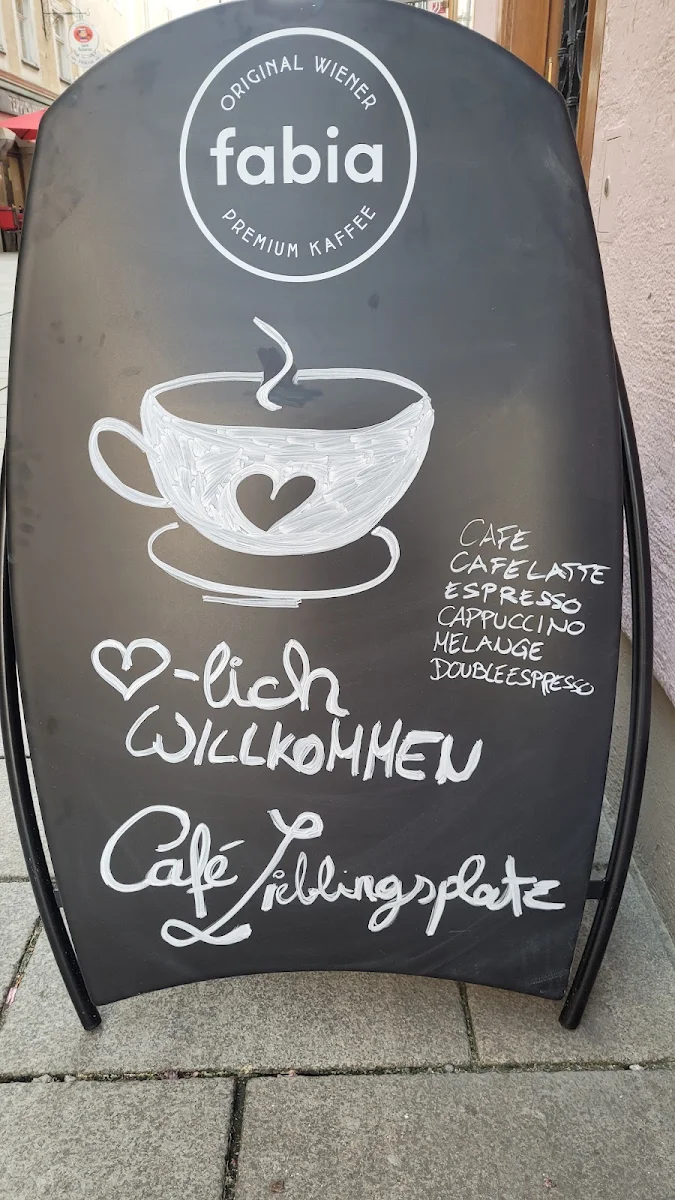 ORIGINAL WIENER
fabia
PREMIUM KAFFEE
CAFE
CAFELATTE
ESPRESSO
CAPPUCCINO
MELANGE
DOUBLEESPRESSO
♥-lich
WILLKOMMEN
Café Lieblingsplatz